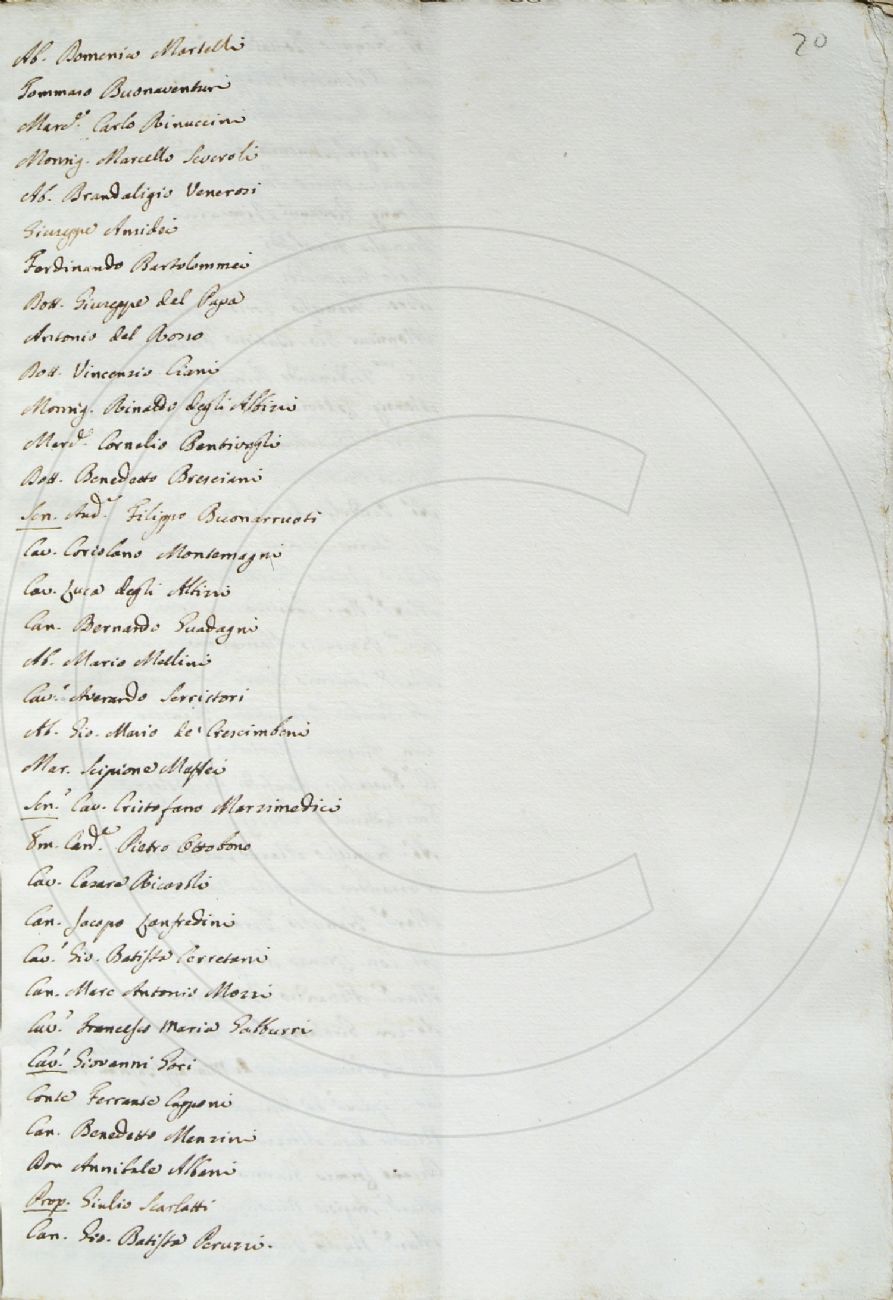 20
Ab. Domenico Martelli
Tommaso Buonaventuri
March.e Carlo Rinuccini
Monsig. Marcello Severoli
Ab. Brandaligio Venerosi
Giuseppe Ansidei
Ferdinando Bartolommei
Dott. Giuseppe del Papa
Antonio del Rosso
Dott. Vincenzio Ciani
Monsig. Rinaldo degli Albizi
March. Cornelio Bentivogli
Dott. Benedetto Bresciani
Sen. Aud.e Filippo Buonarruoti
Cav. Coriolano Montemagni
Cav. Luca degli Albizi
Can. Bernardo Guadagni
Ab. Mario Mellini
Cav.e Averardo Serristori
Ab. Gio. Mario de' Crescimbeni
Mar. Scipione Maffei
Sen.e Cav. Cristofano Marzimedici
Em. Card.e Pietro Ottobono
Cav. Cesare Ricasoli
Can. Jacopo Lanfredini
Cav.e Gio. Batista Cerretani
Can. Marc Antonio Mozzi
Cav.e Francesco Maria Gabburri
Cav.e Giovanni Gori
Conte Ferrante Capponi
Can. Benedetto Menzini
Don Annibale Albani
Prop. Giulio Scarlatti
Can. Gio. Batista Peruzzi.